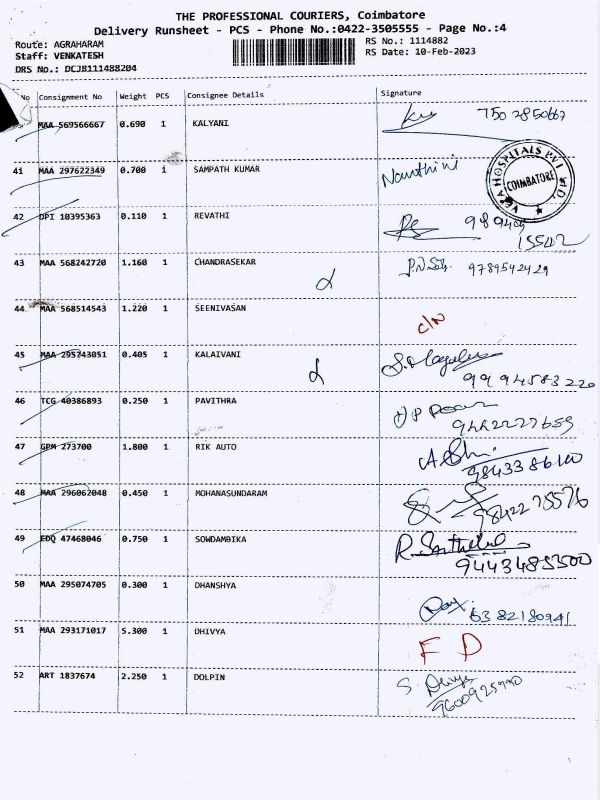 THE PROFESSIONAL COURIERS, Coimbatore
Delivery Runsheet - PCS - Phone No.:0422-3505555 - Page No.:4
Route: AGRAHARAM
RS No.: 1114882
Staff: VENKATESH
RS Date: 10-Feb-2023
DRS No.: DCJB111488204
No Consignment No Weight PCS Consignee Details Signature
MAA 569566667 0.690 1 KALYANI 750 2850667
41 MAA 297622349 0.700 1 SAMPATH KUMAR Nanthini
VEGA HOSPITALS PVT LTD. COIMBATORE
42 DPI 10395363 0.110 1 REVATHI
15542
43 MAA 568242720 1.160 1 CHANDRASEKAR 9789542429
44 MAA 568514543 1.220 1 SEENIVASAN C/N
45 MAA 295743051 0.405 1 KALAIVANI
99 94583220
46 TCG 40386893 0.250 1 PAVITHRA
47 GPM 273700 1.800 1 RIK AUTO
9843386100
48 MAA 296062048 0.450 1 MOHANASUNDARAM
98422 75576
49 EDQ 47468046 0.750 1 SOWDAMBIKA
9443485500
50 MAA 295074705 0.300 1 DHANSHYA
6382180941
51 MAA 293171017 5.300 1 DHIVYA F D
52 ART 1837674 2.250 1 DOLPIN S. Divya